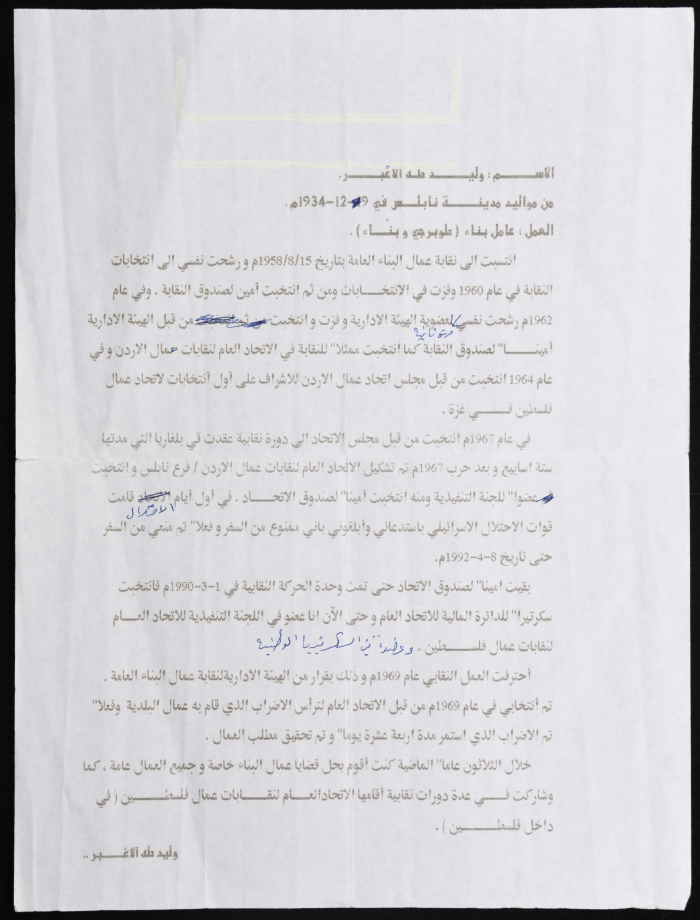 الاســـم : وليـــد طه الاغـبـــر .
من مواليد مدينـــة نابلـس في 9-12-1934م.
العمل : عامل بناء ( طوبرجي و بنـّـاء ) .
انتسبت الى نقابة عمال البناء العامة بتاريخ 1958/8/15م و رشحت نفسي الى انتخابات
النقابة في عام 1960 وفزت في الانتخـــابات ومن ثم انتخبت أمين لصندوق النقابة . وفي عام
1962م رشحت نفسي لعضوية الهيئة الادارية و فزت و انتخبت من قبل الهيئة الادارية
مرة ثانية
أمينـــا" لصندوق النقابة كما انتخبت ممثلا" للنقابة في الاتحاد العام لنقابات عمال الاردن و في
عام 1964 انتخبت من قبل مجلس اتحاد عمال الاردن للاشراف على أول أنتخابات لاتحاد عمال
فلسطين فـــي غزة .
في عام 1967م انتخبت من قبل مجلس الاتحاد الى دورة نقابية عقدت في بلغاريا التي مدتها
ستة اسابيع و بعد حرب 1967م تم تشكيل الاتحاد العام لنقابات عمال الاردن / فرع نابلس و انتخبت
عضوا" للجنة التنفيذية ومنه انتخبت أمينا" لصندوق الاتحـــاد . في أول أيام الاتحاد قامت
الاحتلال
قوات الاحتلال الاسرائيلي باستدعائي وأبلغوني باني ممنوع من السفر و فعلا" تم منعي من السفر
حتى تاريخ 8-4-1992م.
بقيت امينا" لصندوق الاتحاد حتى تمت وحدة الحركة النقابية في 1-3-1990م فانتخبت
سكرتيرا" للدائرة المالية للاتحاد العام و حتى الآن انا عضو في اللجنة التنفيذية للاتحاد العـــام
لنقابات عمال فلســطين . وعضواً في السكرتيريا الوطنية
أحترفت العمل النقابي عام 1969م و ذلك بقرار من الهيئة الاداريةلنقابة عمال البناء العامة .
تم أنتخابي في عام 1969م من قبل الاتحاد العام لترأس الاضراب الذي قام به عمال البلدية وفعلا"
تم الاضراب الذي استمر مدة اربعة عشرة يوما" و تم تحقيق مطلب العمال .
خلال الثلاثون عاما" الماضية كنت أقوم بحل قضايا عمال البناء خاصة و جميع العمال عامة ، كما
وشاركت فـــي عدة دورات نقابية أقامها الاتحادالعـام لنقــابات عمال فلســـطين ( في
داخل فلســـطين ) .
وليد طه الاغـــبر ..